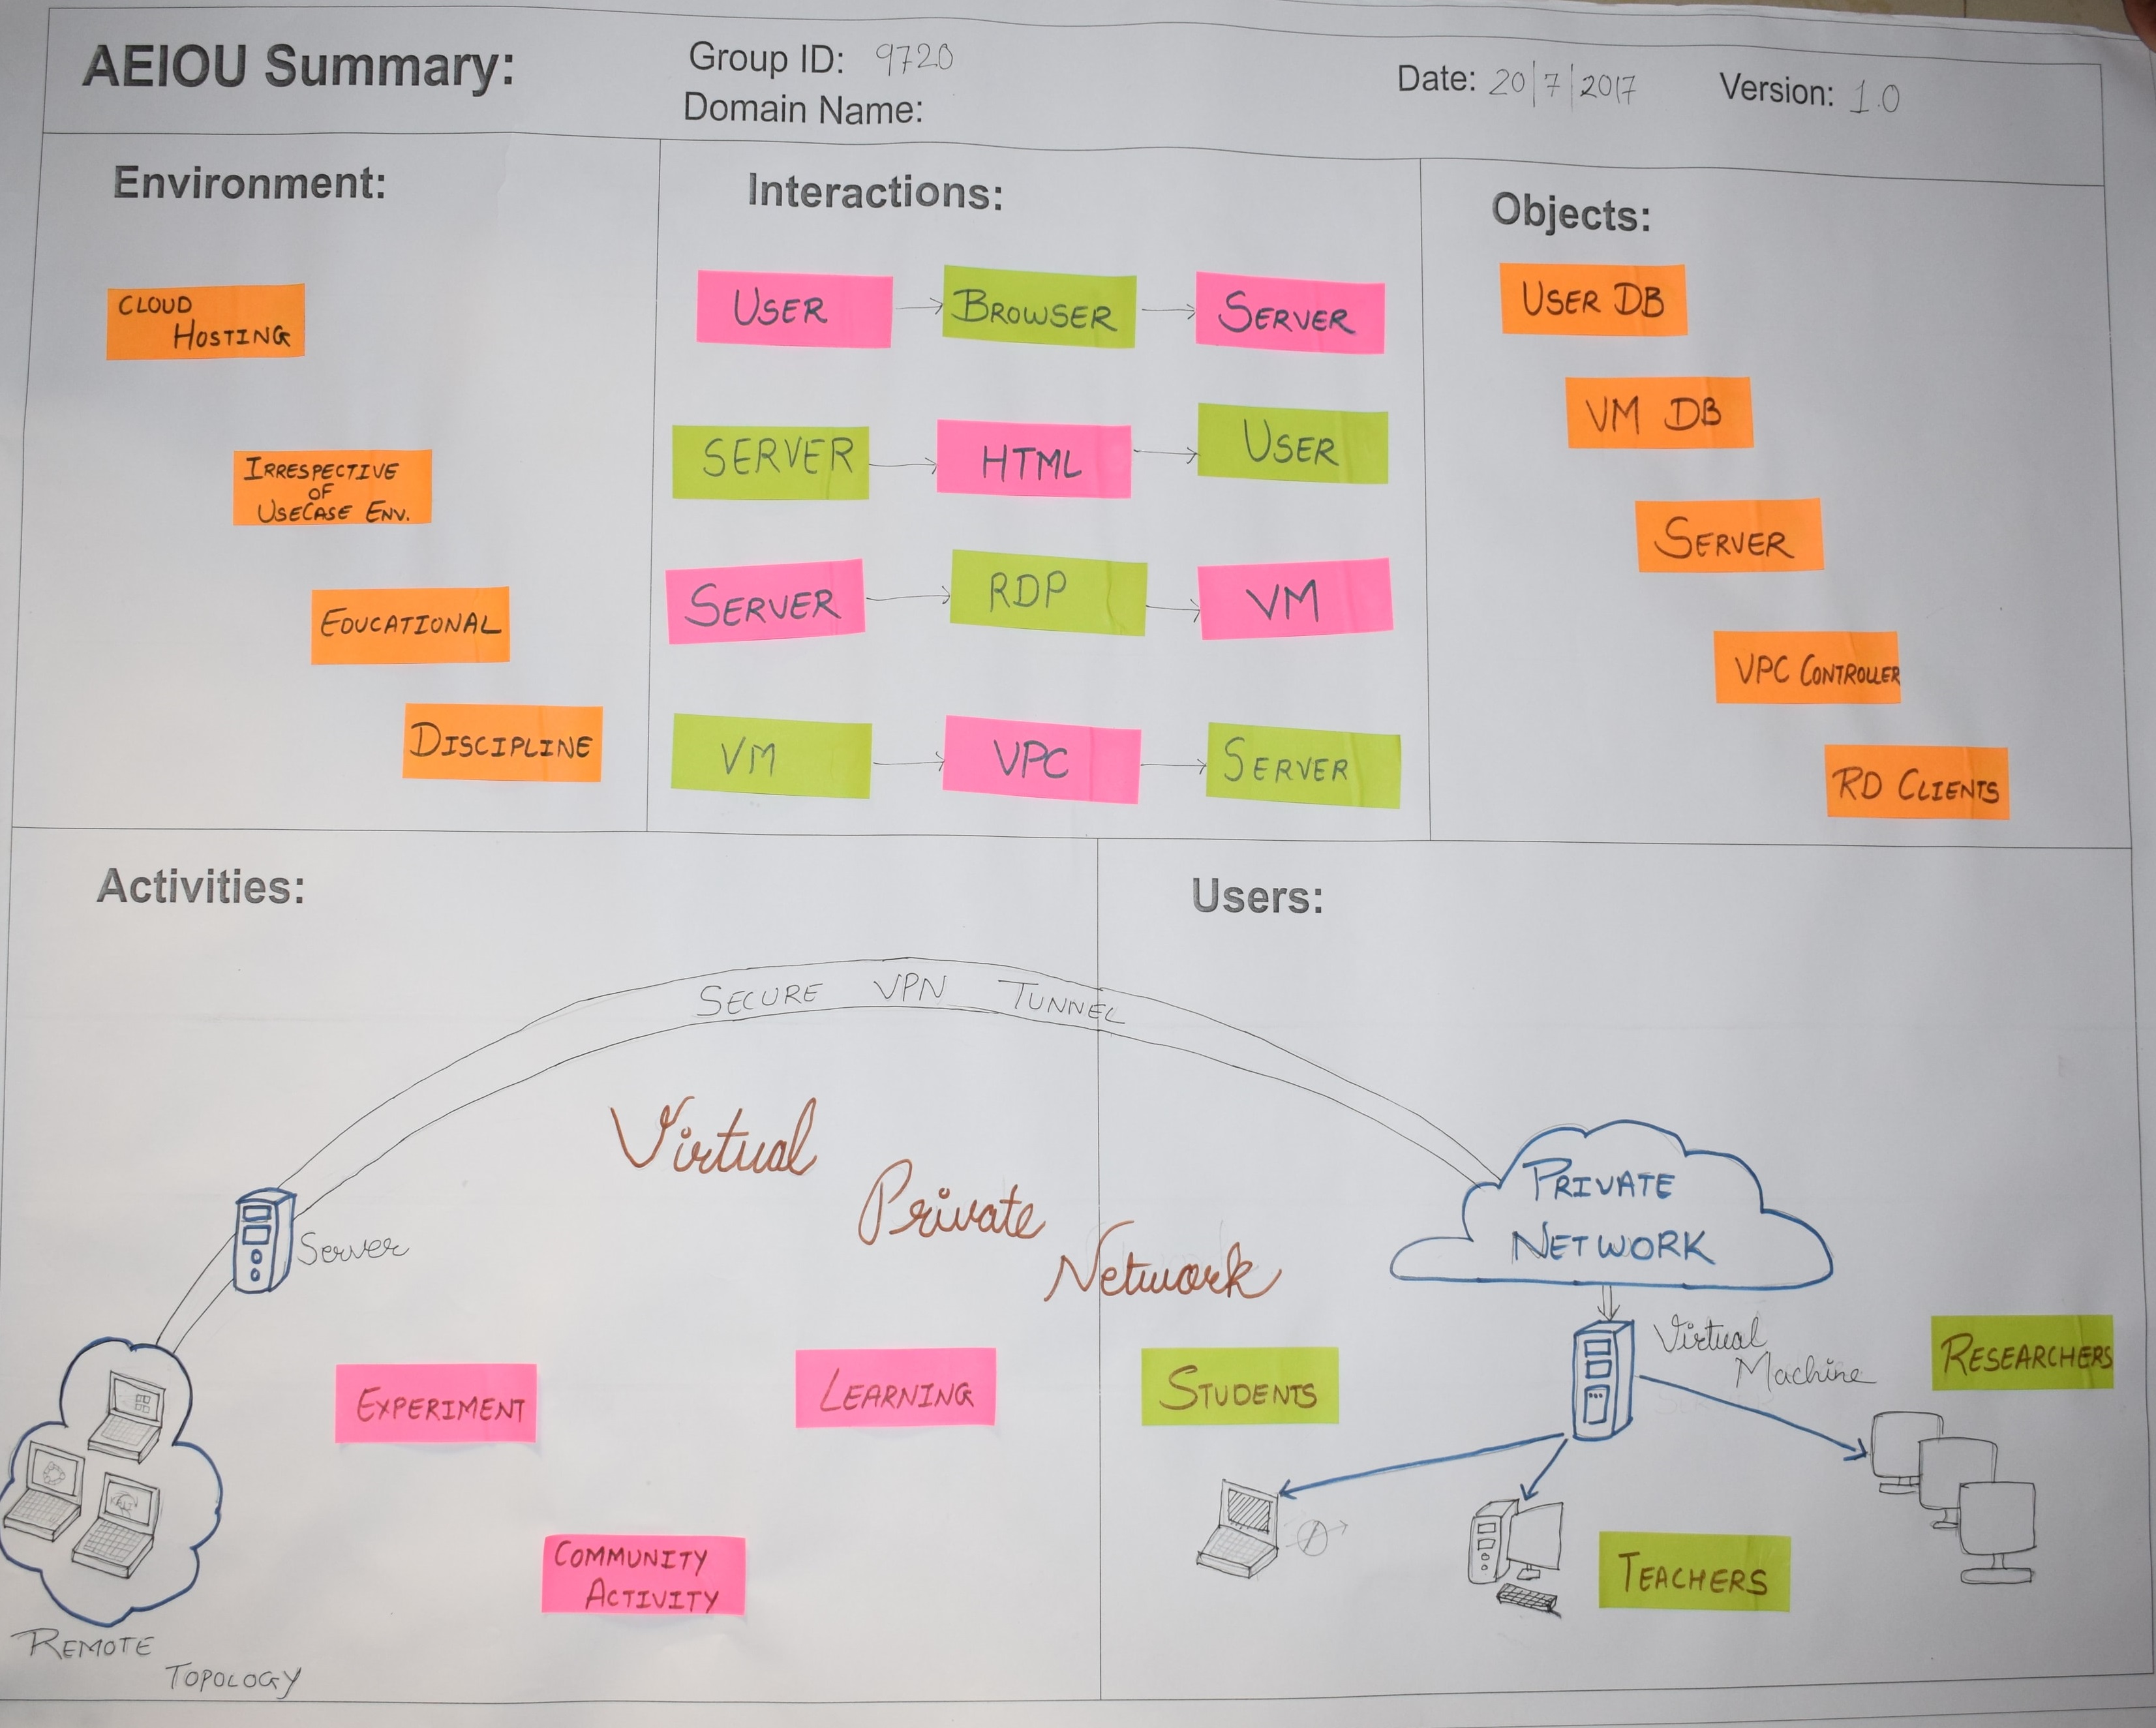 AEIOU Summary:
Group ID: 9720
Domain Name:
Date: 20/7/2017
Version: 1.0
Environment:
CLOUD
HOSTING
IRRESPECTIVE
OF
USECASE ENV.
EDUCATIONAL
DISCIPLINE
Interactions:
USER
BROWSER
SERVER
SERVER
HTML
USER
SERVER
RDP
VM
VM
VPC
SERVER
Objects:
USER DB
VM DB
SERVER
VPC CONTROLLER
RD CLIENTS
Activities:
SECURE VPN TUNNEL
Virtual
Private
Network
Server
EXPERIMENT
LEARNING
COMMUNITY
ACTIVITY
REMOTE
TOPOLOGY
Users:
PRIVATE
NETWORK
Virtual
Machine
STUDENTS
RESEARCHERS
TEACHERS